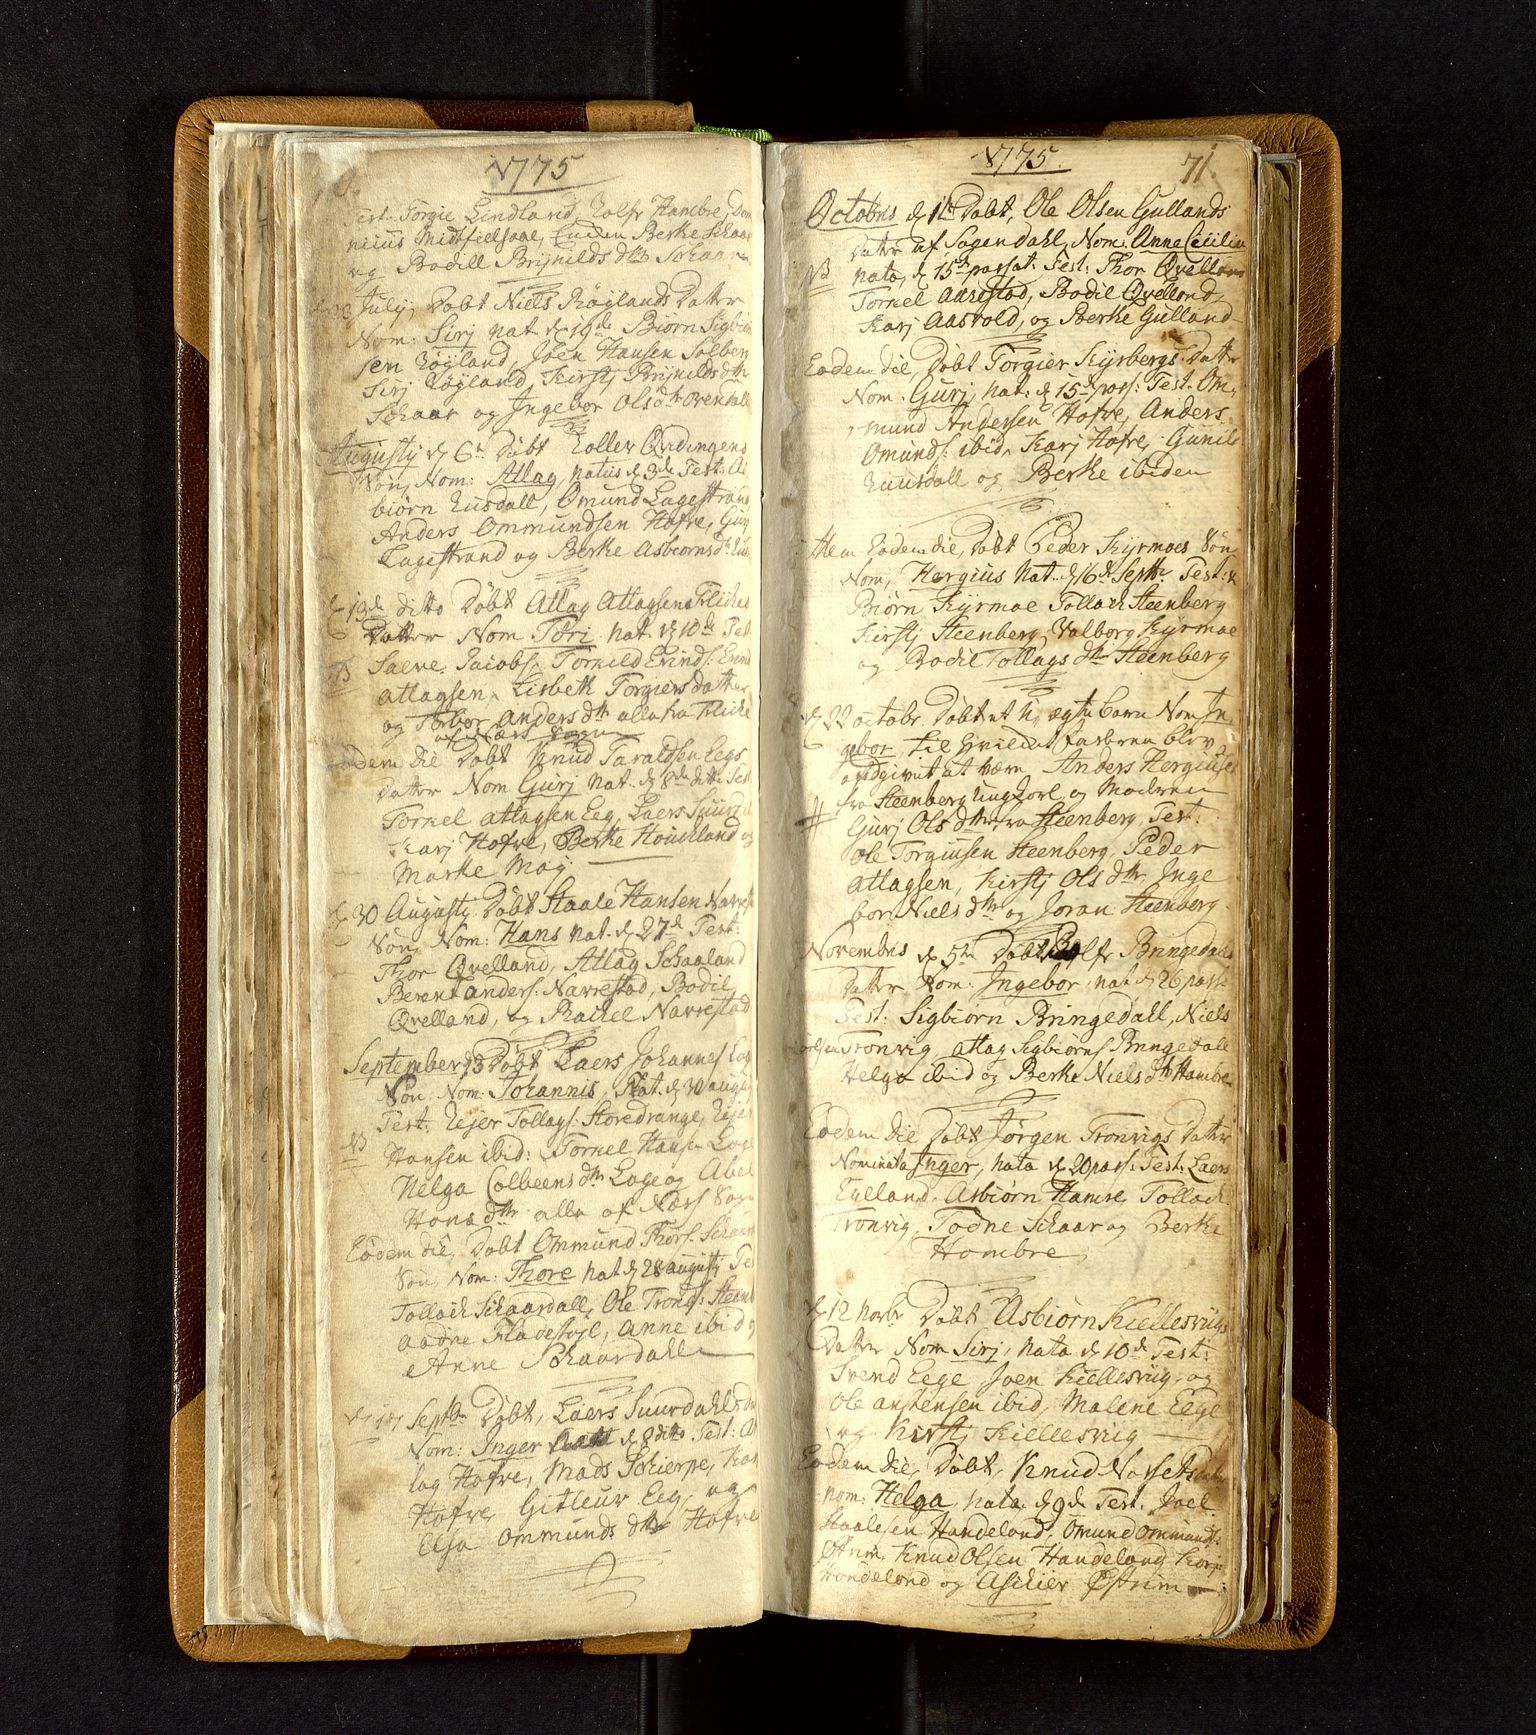 1775
Test: Torgie Lindland, Rolfr Hambre, Don
niius Midtfielsaae, Berke Schaar
og Bodill Brÿnilds dtr Schaar
30 Julij, Døbt Niels Røglands Datter
Nom: Sirj nat d 19de Biørn Sigbiør
sen Røgland, Joen Hansen Solberg
Sirj Røgland, Kirstj Brÿnilds dtr
Schaar og Ingebor Ols dtr
Augustij d 6te Døbt Qvidingens
Søn, Nom: Atlag, natus d 3de Test: As
biørn Ruusdall, Omund Lagestrand
Anders Ommundsen Hofre, Gurj
Lagestrand og Berke Asbiorns dtr
d 13de ditto Døbt Atlag Atlagsens
Datter Nom Tori nat d 10de Test
NB Saeve Jacobs. Torkild Erinds:
Atlagsen, Lisbeth Torgiers datter
og Torbor Anders dtr alle fra
af Næss Sogn
Eodem die Døbt Knud Taraldsen Eegs
Datter Nom Gurj Nat d 8de ditto Test
Tornel Atlagsen Eeg, Laers
Karj Hofre, Berke Houeland og
Marke Moÿ.
d 30 Augustij Døbt Staale Hansen Navrestad
Søn, Nom: Hans nat. d 27de Test:
Thor Qvelland, Atlag Schaaland
Berent Anders: Navrestad, Bodil
Qvelland, og Rachel Navrestad
September d 3 Døbt Laers Johannes
Søn Nom: Johannis, Nat. d 30 augu
Test: Rejer Tollags: Storedrange, Rejer
NB Hansen ibid: Tornel Hans
Helga Colbeens dtr Loge og Abel
Hans dtr alle af Næss Sogn
Eodem die, Døbt Ommund Thors. Schaar
Søn, Nom: Thore nat d 28 augustj Te
Tollach Schaardall, Ole Tronds: Steenb
Aadne Fladestøjl, Anne ibid og
Anne Schaardall
Septbr Døbt, Laers Suurdahls
Nom: Inger Natt d 8 ditto Test: At
lag Hofre, Mads Schierpe, Kar
Hofre, Gitleur Eeg, og
Elsa Ommunds dtr Hofre
1775.
71.
Octobris d 1te Døbt, Ole Olsen Gullands
Datter af Sogendahl, Nom: Anne Cicilia
NB nata, d 15de passat. Test: Thor Qvelland
Tornel Aarestad, Bodil Qvelland,
Karj Aasvold, og Berke Gulland
Eodem die, Døbt Torgier Kÿrbergs Datter
Nom: Gurj, nat: d 15de pass: Test. Om
mund Andersen Hofre, Anders
Omunds: ibid, Karj Hofre, Gunil
Ruusdall og Berke ibidem
Item Eodem die, Døbt Peder Kÿrmoes Søn
Nom, Hergius Nat. d 16de Septbr Test:
Biørn Kÿrmoe Tollach Steenberg
Kirstj Steenberg, Valborg Kÿrmoe
og Bodil Tollags dtr Steenberg
d 22 octobr. Døbt et U, ægte barn Nom In
gebor, til hvilket farbren blev
opgivet at være Anders Hergiuse
fra Steenberg ungkarl, og Modren
# Gurj Ols dtr fra Steenberg, Test:
Ole Torgiusen Steenberg, Peder
Atlagsen, Kirstj Ols dtr Inge
bor Niels dtr og Joran Steenberg
Novembris d 5te Døbt Rolfr Bringedahls
Datter, Nom: Ingebor, nat d 26 pass.
Test: Sigbiørn Bringedahl, Niels
Tronvig, Atlag Sigbiørns. Bringedall
Helga ibid og Berke Niels dtr Hambre
Eodem die Døbt Jørgen Tronvigs Datter
Nominata Inger, nata d 20 pass: Test: Laers
Egeland, Asbiørn Hamre, Tollach
Tronvig, Todne Schaar og Berke
Hombre
d 12 Novbr Døbt Asbiørn Kiellesvigs
Datter Nom Sirj, nata d 10de Test:
Svend Eege, Joen Kiellesviig, og
Ole anstensen ibid, Malene Eege
og Kirstj Kiellesviig
Eodem die, Døbt, Knud Navsets
nom: Helga nata d 9de Test. Joel
Staalesen Handeland, Omund Ommunds:
Østrim. Knud Olsen Handeland, Karj
Handeland og Aschier Østrim